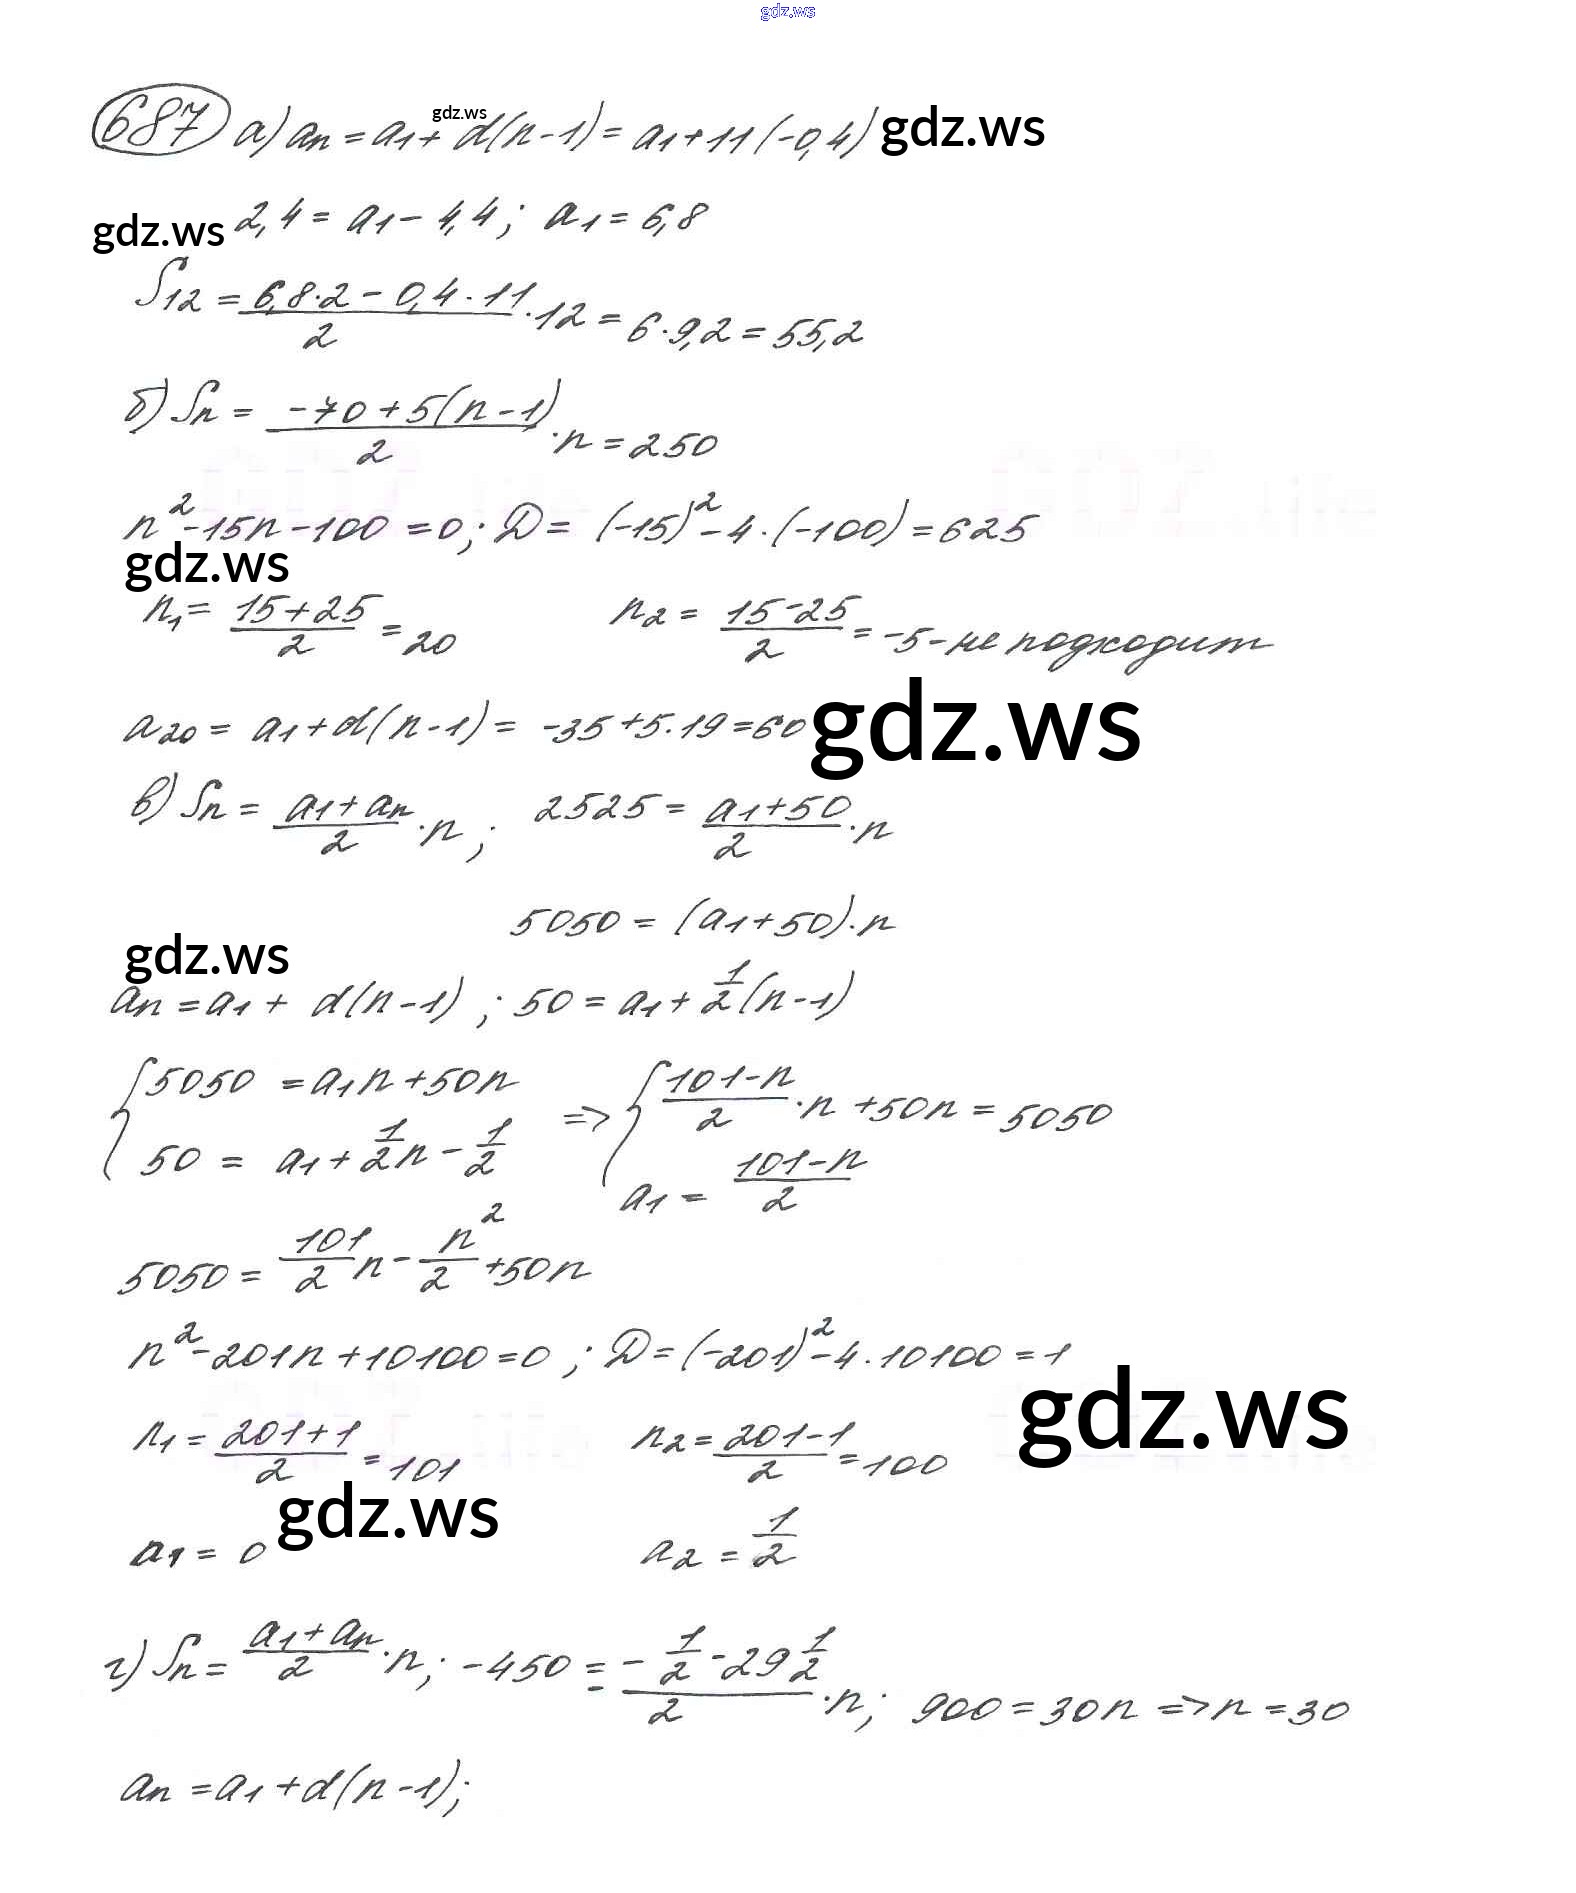 gdz.ws
687 а) an = a1 + d(n-1) = a1 + 11(-0,4) gdz.ws
gdz.ws
gdz.ws 2,4 = a1 - 4,4; a1 = 6,8
S12 = (6,8·2 - 0,4·11)/2 · 12 = 6·9,2 = 55,2
б) Sn = (-70 + 5(n-1))/2 · n = 250
n² - 15n - 100 = 0; D = (-15)² - 4·(-100) = 625
gdz.ws
n1 = (15+25)/2 = 20 n2 = (15-25)/2 = -5 - не подходит
a20 = a1 + d(n-1) = -35 + 5·19 = 60 gdz.ws
в) Sn = (a1 + an)/2 · n; 2525 = (a1+50)/2 · n
5050 = (a1+50)·n
gdz.ws
an = a1 + d(n-1); 50 = a1 + 1/2(n-1)
{5050 = a1n + 50n => {(101-n)/2 · n + 50n = 5050
50 = a1 + 1/2n - 1/2 a1 = (101-n)/2
5050 = 101/2 n - n²/2 + 50n
n² - 201n + 10100 = 0; D = (-201)² - 4·10100 = 1
gdz.ws
n1 = (201+1)/2 = 101 n2 = (201-1)/2 = 100
gdz.ws
a1 = 0 a2 = 1/2
г) Sn = (a1 + an)/2 · n; -450 = (-1/2 - 29 1/2)/2 · n; 900 = 30n => n = 30
an = a1 + d(n-1);